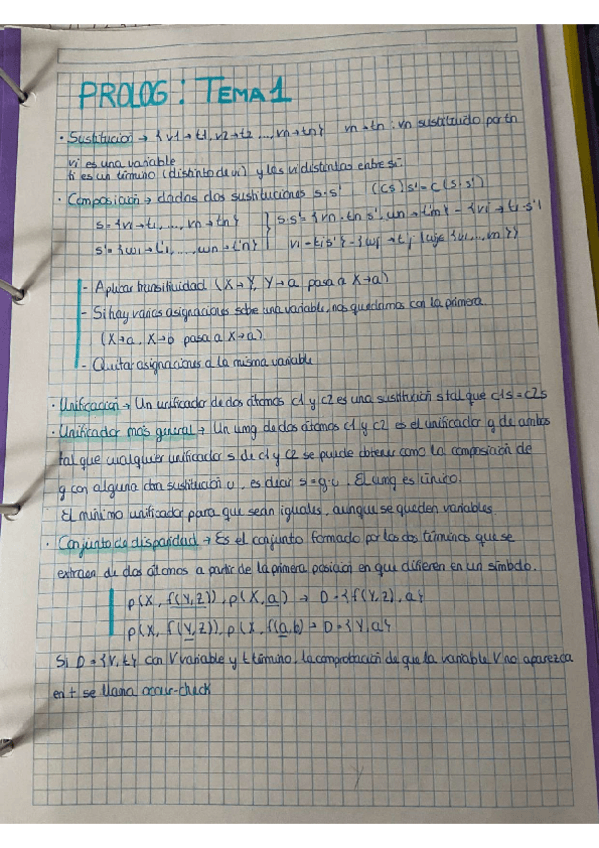 PROLOG: TEMA 1
· Sustitucion → {v1→t1, v2→t2 ..., vn→tn} vn→tn : vn sustituido por tn
vi es una variable
ti es un término (distinto de vi) y las vi distintas entre sí
· Composicion → dadas dos sustituciones s·s' (Cs)s' = C(s·s')
s = {v1→t1, ..., vn→tn}
s' = {w1→t'1, ..., wn→t'n}
- Aplicar transitividad (X→Y, Y→a pasa a X→a)
- Si hay varias asignaciones sobre una variable, nos quedamos con la primera
(X→a, X→b pasa a X→a)
- Quitar asignaciones a la misma variable
· Unificación → Un unificador de dos átomos c1 y c2 es una sustitución s tal que c1s = c2s
· Unificador más general → Un umg de dos átomos c1 y c2 es el unificador g de ambos
tal que cualquier unificador s de c1 y c2 se puede obtener como la composición de
g con alguna otra sustitución u, es decir s=g·u. El umg es único.
El mínimo unificador para que sean iguales, aunque se queden variables
· Conjunto de disparidad → Es el conjunto formado por los dos términos que se
extraen de dos átomos a partir de la primera posición en que difieren en un símbolo.
p(X, f(Y,Z)), p(X,a) → D={f(Y,Z),a}
p(X, f(Y,Z)), p(X, f(a,b)) → D={Y,a}
Si D={V,t} con V variable y t término, la comprobación de que la variable V no aparezca
en t se llama occur-check